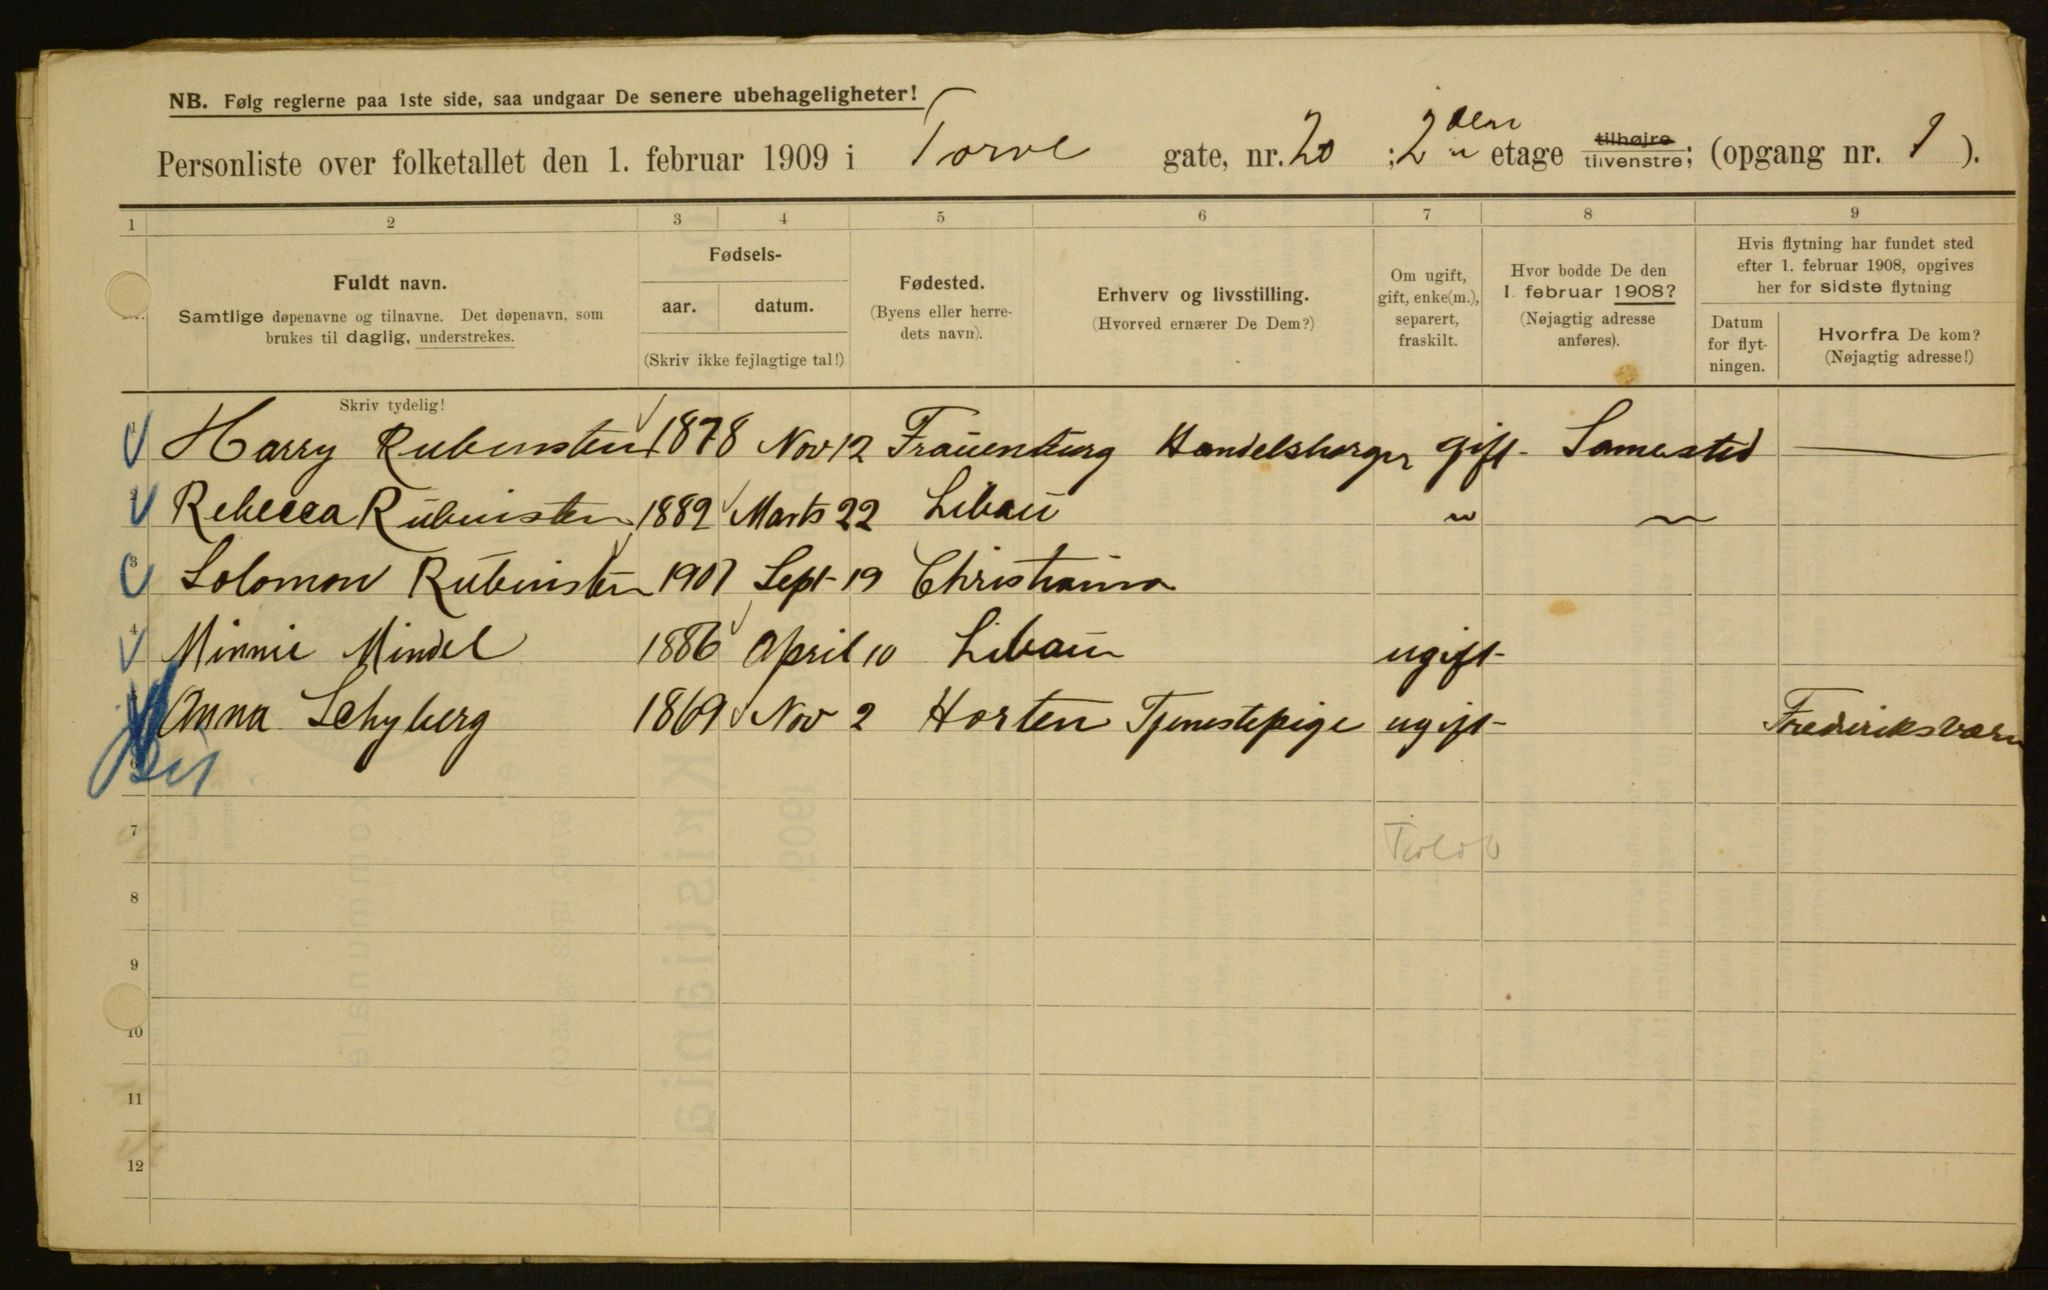 NB. Følg reglerne paa 1ste side, saa undgaar De senere ubehageligheter!
Personliste over folketallet den 1. februar 1909 i Torve gate, nr. 20 ; 2den etage tilhøjre tilvenstre; (opgang nr. 1 ).
1 2 3 4 5 6 7 8 9
Fuldt navn.
Samtlige døpenavne og tilnavne. Det døpenavn, som
brukes til daglig, understrekes.
Fødsels-
aar. datum.
(Skriv ikke fejlagtige tal!)
Fødested.
(Byens eller herre-
dets navn).
Erhverv og livsstilling.
(Hvorved ernærer De Dem?)
Om ugift,
gift, enke(m.),
separert,
fraskilt.
Hvor bodde De den
1. februar 1908?
(Nøjagtig adresse
anføres).
Hvis flytning har fundet sted
efter 1. februar 1908, opgives
her for sidste flytning
Datum
for flyt-
ningen.
Hvorfra De kom?
(Nøjagtig adresse!)
Skriv tydelig!
Harry Rubinstein 1878 Nov 12 Frauenburg Handelsborger gift Samested
2 Rebecca Rubinstein 1882 Marts 22 Libau " "
3 Solomon Rubinstein 1907 Sept 19 Christiania
4 Minnie Mindel 1886 April 10 Libau ugift
Anna Schyberg 1869 Nov 2 Horten Tjenestepige ugift Frederiksværn
6
7
8
9
10
11
12